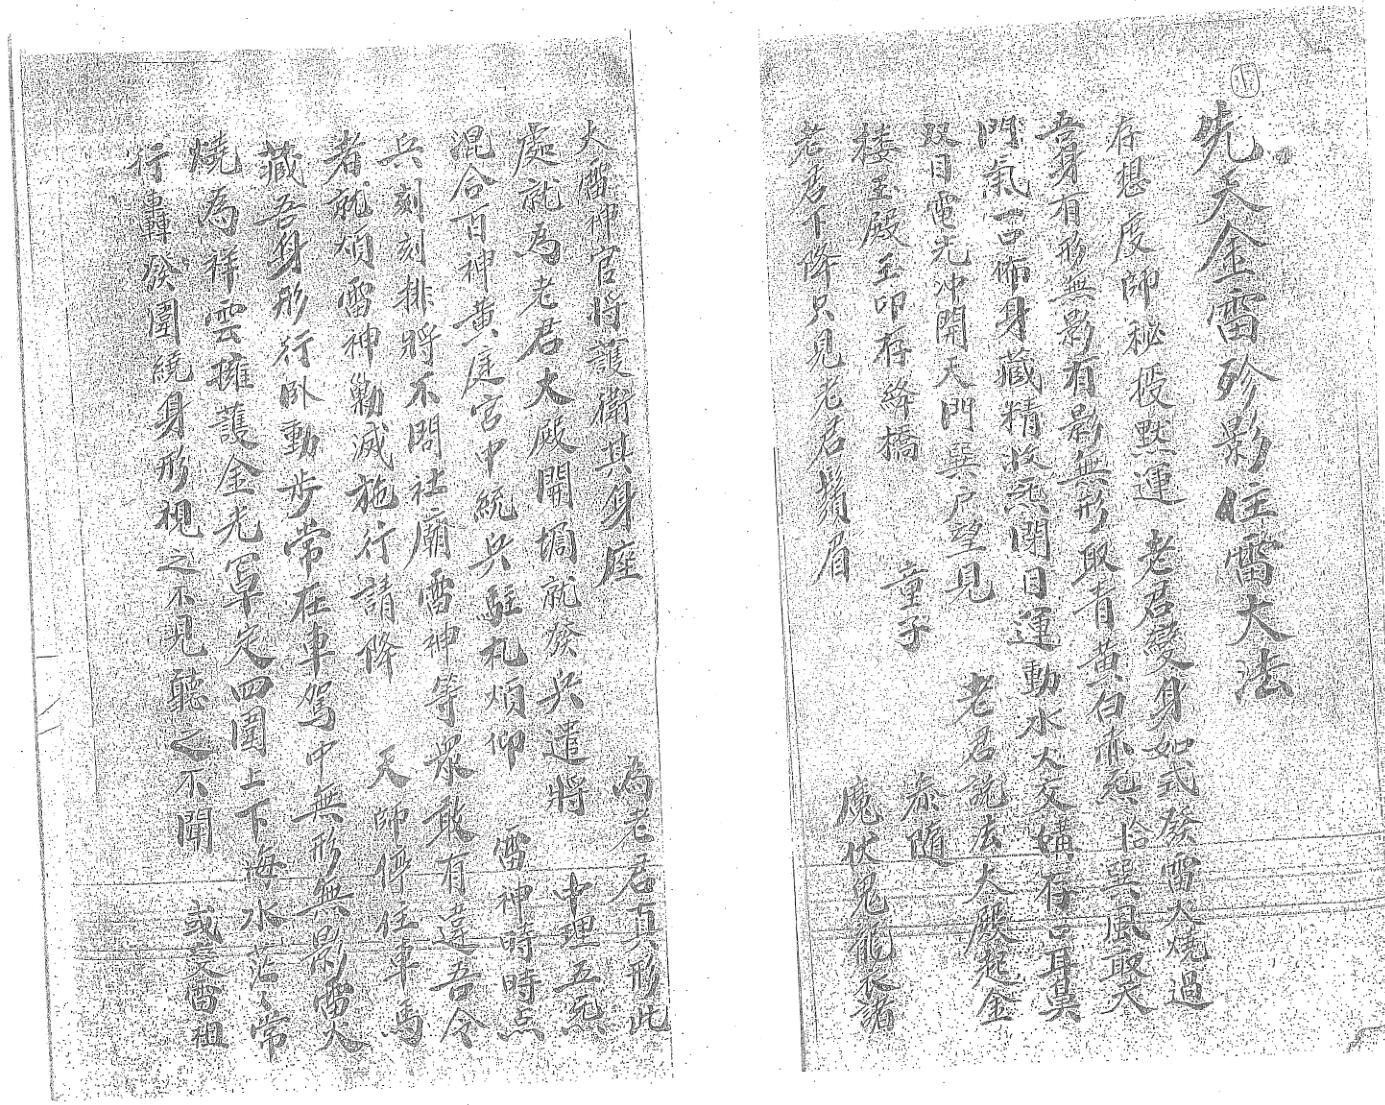 先天金雷珍影住雷大法
存想度師秘授默運 老君變身如式發雷火燒過
吾身有形無影有影無形取青黃白赤炁恰巽風取天
門氣一口佈身藏精收炁閉目運動水火交媾存口耳鼻
双目電光冲開天門巽户望見 老君說法大殿起金
楼玉殿玉印存絳橋 童子 泰隨
老君下降只見老君鬚眉 魔伏鬼龍衣諸
大雷神官將護衛其身座 為老君真形此
處就為老君大殿開壇就發兵遣將 中理五炁
混合百神黃庭宮中統兵駐札煩仰 雷神時時点
兵刻刻排將不問社廟雷神等眾敢有違吾令
者就煩雷神勦滅施行請降 天師停住車馬
藏吾身形行卧動步常在車駕中無形無影雷火
燒為祥雲擁護金光罩定四圍上下海水茫々常
行轟發圍繞身形視之不見聽之不聞 或变雷祖